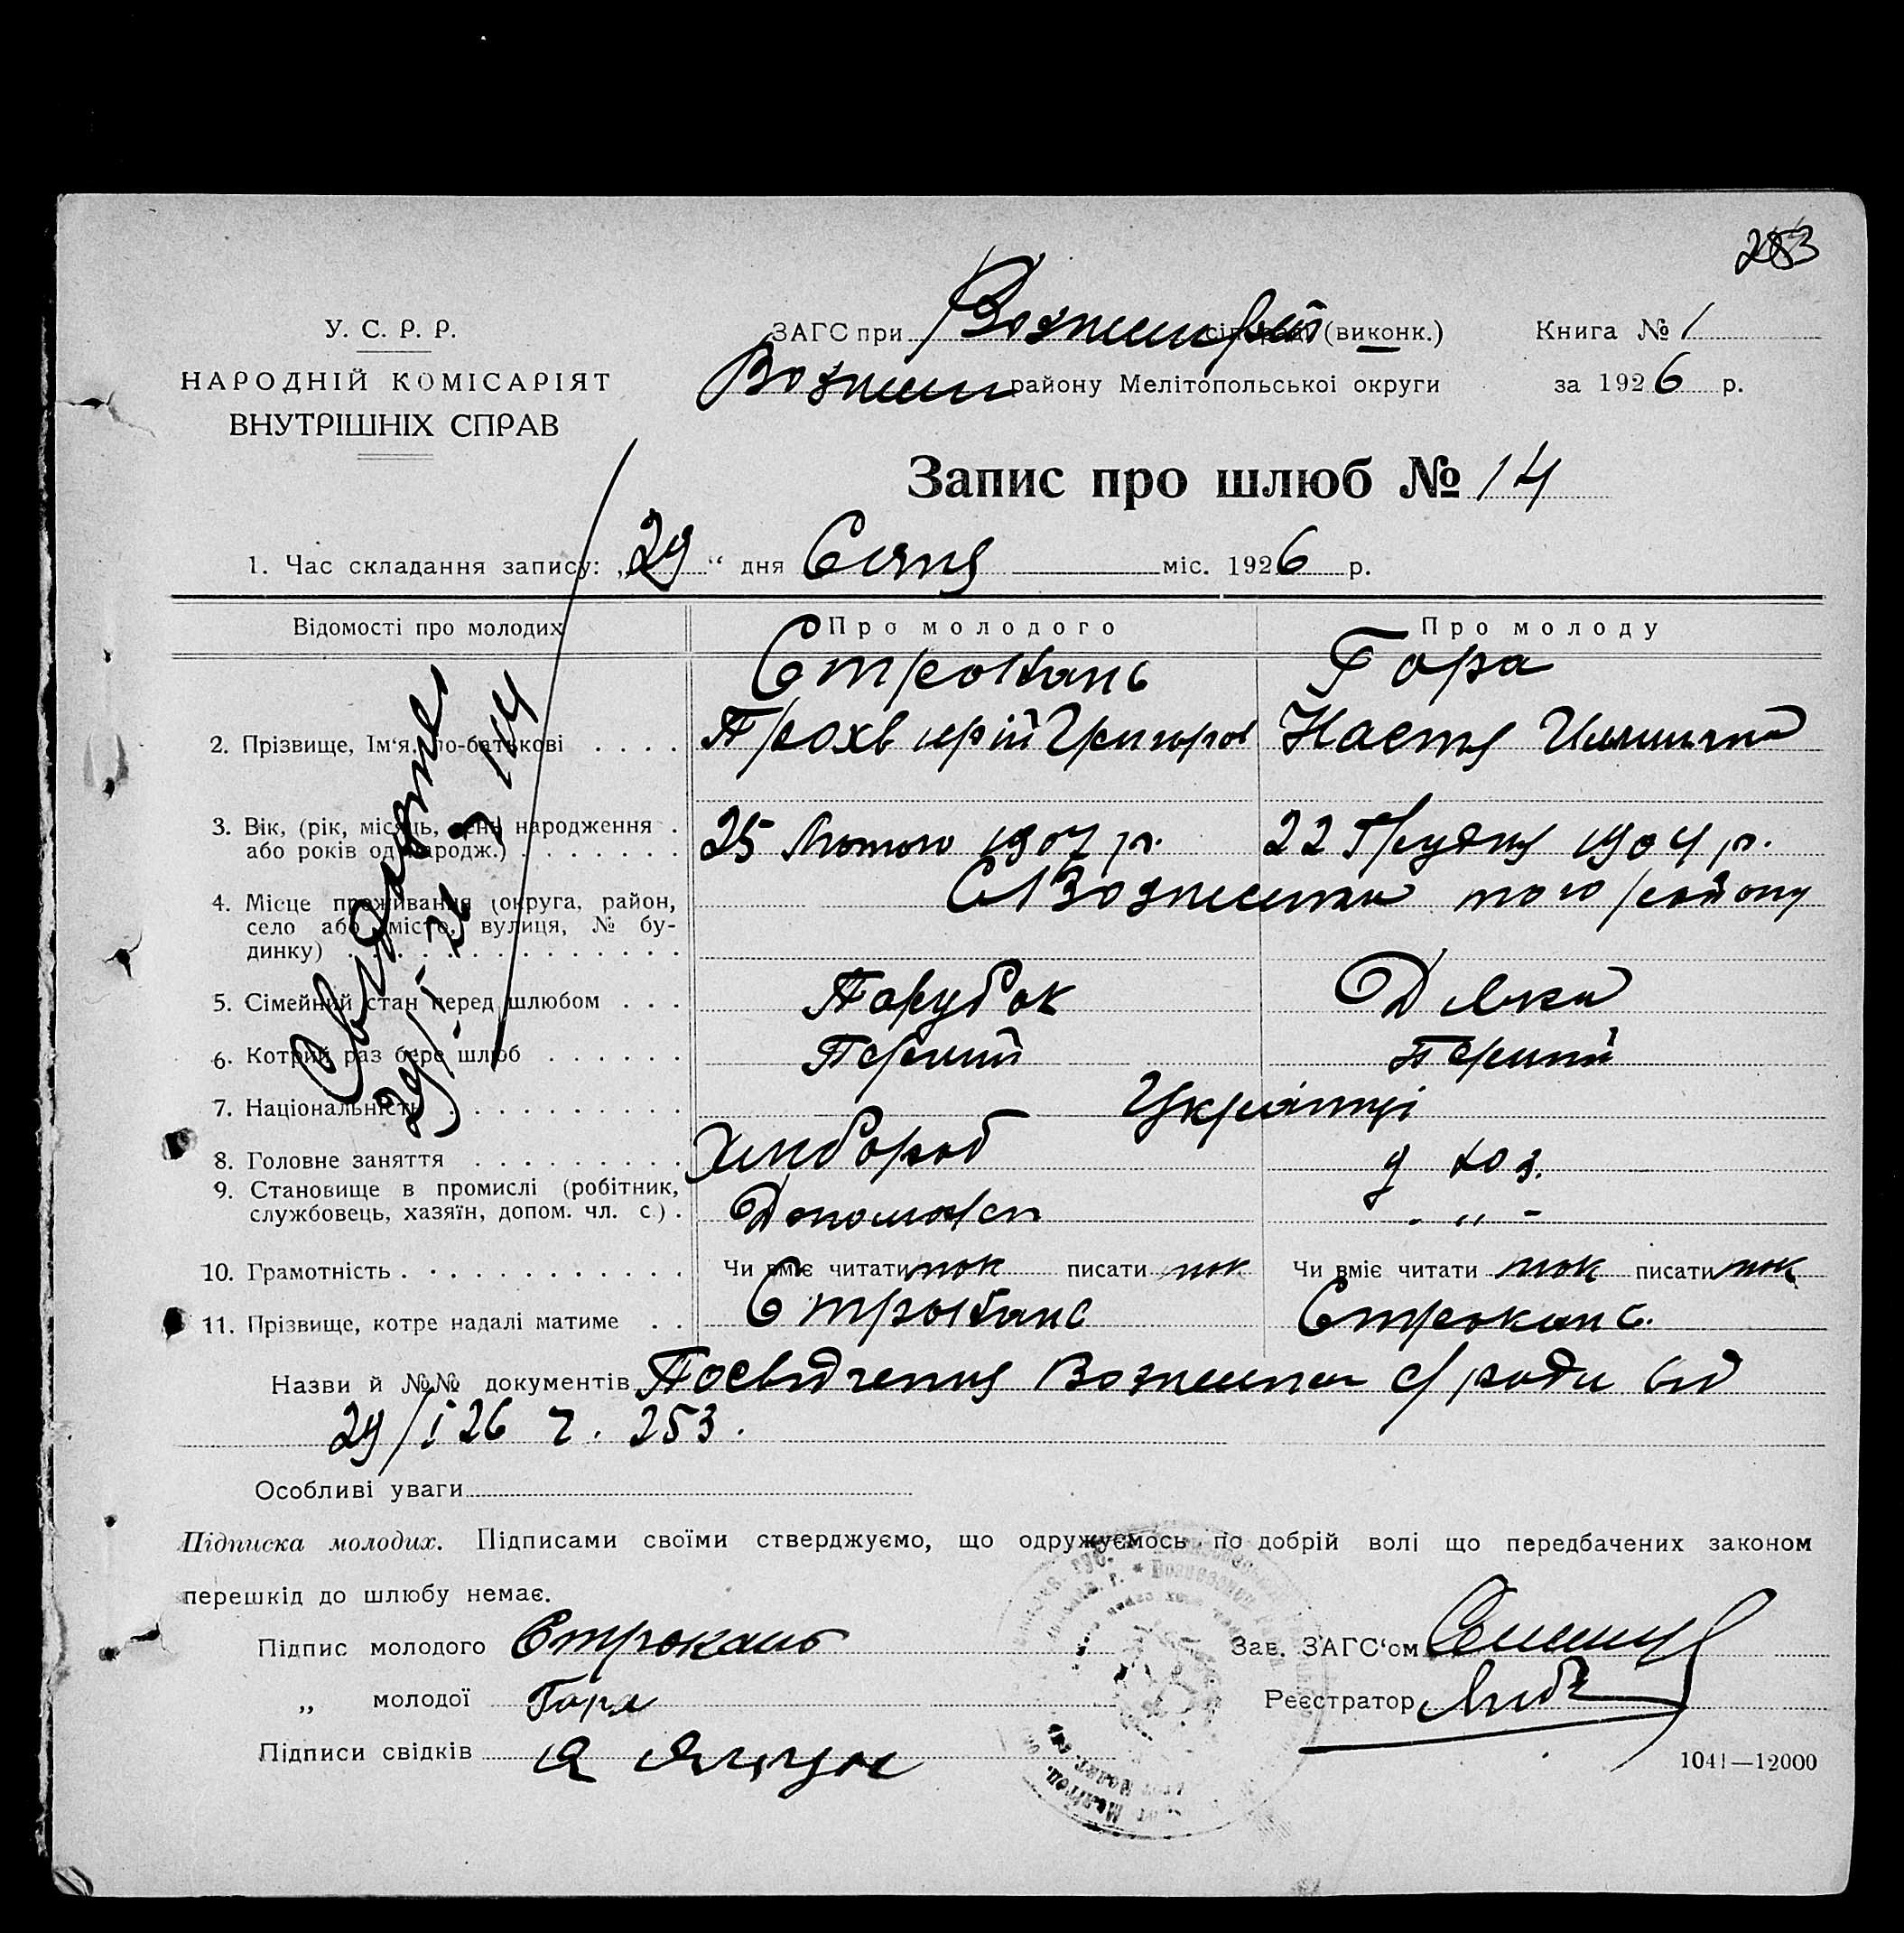 283
У. С. Р. Р.
НАРОДНІЙ КОМІСАРІЯТ
ВНУТРІШНІХ СПРАВ
ЗАГС при (виконк.)
Книга № 1
району Мелітопольської округи
за 1926 р.
Запис про шлюб № 14
1. Час складання запису: „29“ дня Січня міс. 1926 р.
Відомості про молодих
Про молодого
Про молоду
Строкань
Гора
2. Прізвище, Ім'я, по-батькові
Григоров
Настя
3. Вік, (рік, місяць, день народження
або років од народж.)
25 Лютого 1907 р.
22 Грудня 1904 р.
4. Місце проживання (округа, район,
село або місто, вулиця, № бу-
динку)
того району
5. Сімейний стан перед шлюбом
Парубок
Дівка
6. Котрий раз бере шлюб
Перший
Перший
7. Національність
Українці
8. Головне заняття
Хлібороб
д хоз.
9. Становище в промислі (робітник,
службовець, хазяїн, допом. чл. с.)
- „ -
10. Грамотність
Чи вміє читати так писати так
Чи вміє читати так писати так
11. Прізвище, котре надалі матиме
Строкань
Строкань
Назви й №№ документів Посвідчення с/ради від
29/I 26 ч. 253.
Особливі уваги
Підписка молодих. Підписами своїми стверджуємо, що одружуємось по добрій волі що передбачених законом
перешкід до шлюбу немає.
Підпис молодого Строкань
Зав. ЗАГС'ом
„ молодої Гора
Реєстратор
Підписи свідків
1041—12000